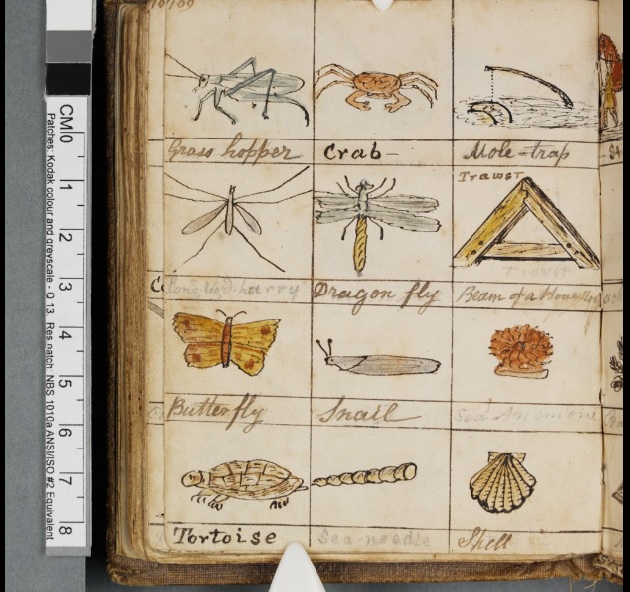 Grass hopper
Crab
Mole-trap
Trawst
Trawst
Dragon fly
Beam of a House
Butterfly
Snail
Sea Anemone
Tortoise
Sea-needle
Shell
CM 0 1 2 3 4 5 6 7 8
Patches: Kodak colour and greyscale - Q 13 Res patch: NBS 1010a ANSI/ISO #2 Equivalent